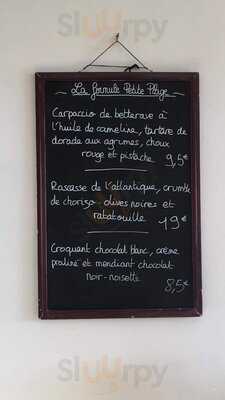 Sluurpy
La formule Petite Plage
Carpaccio de betterave à
l'huile de cameline, tartare de
dorade aux agrumes, choux
rouge et pistache 9,5€
Rascasse de l'atlantique, crumble
de chorizo olives noires et
ratatouille 19€
Croquant chocolat blanc, crème
praliné et mendiant chocolat
noir-noisette 8,5€
Sluurpy